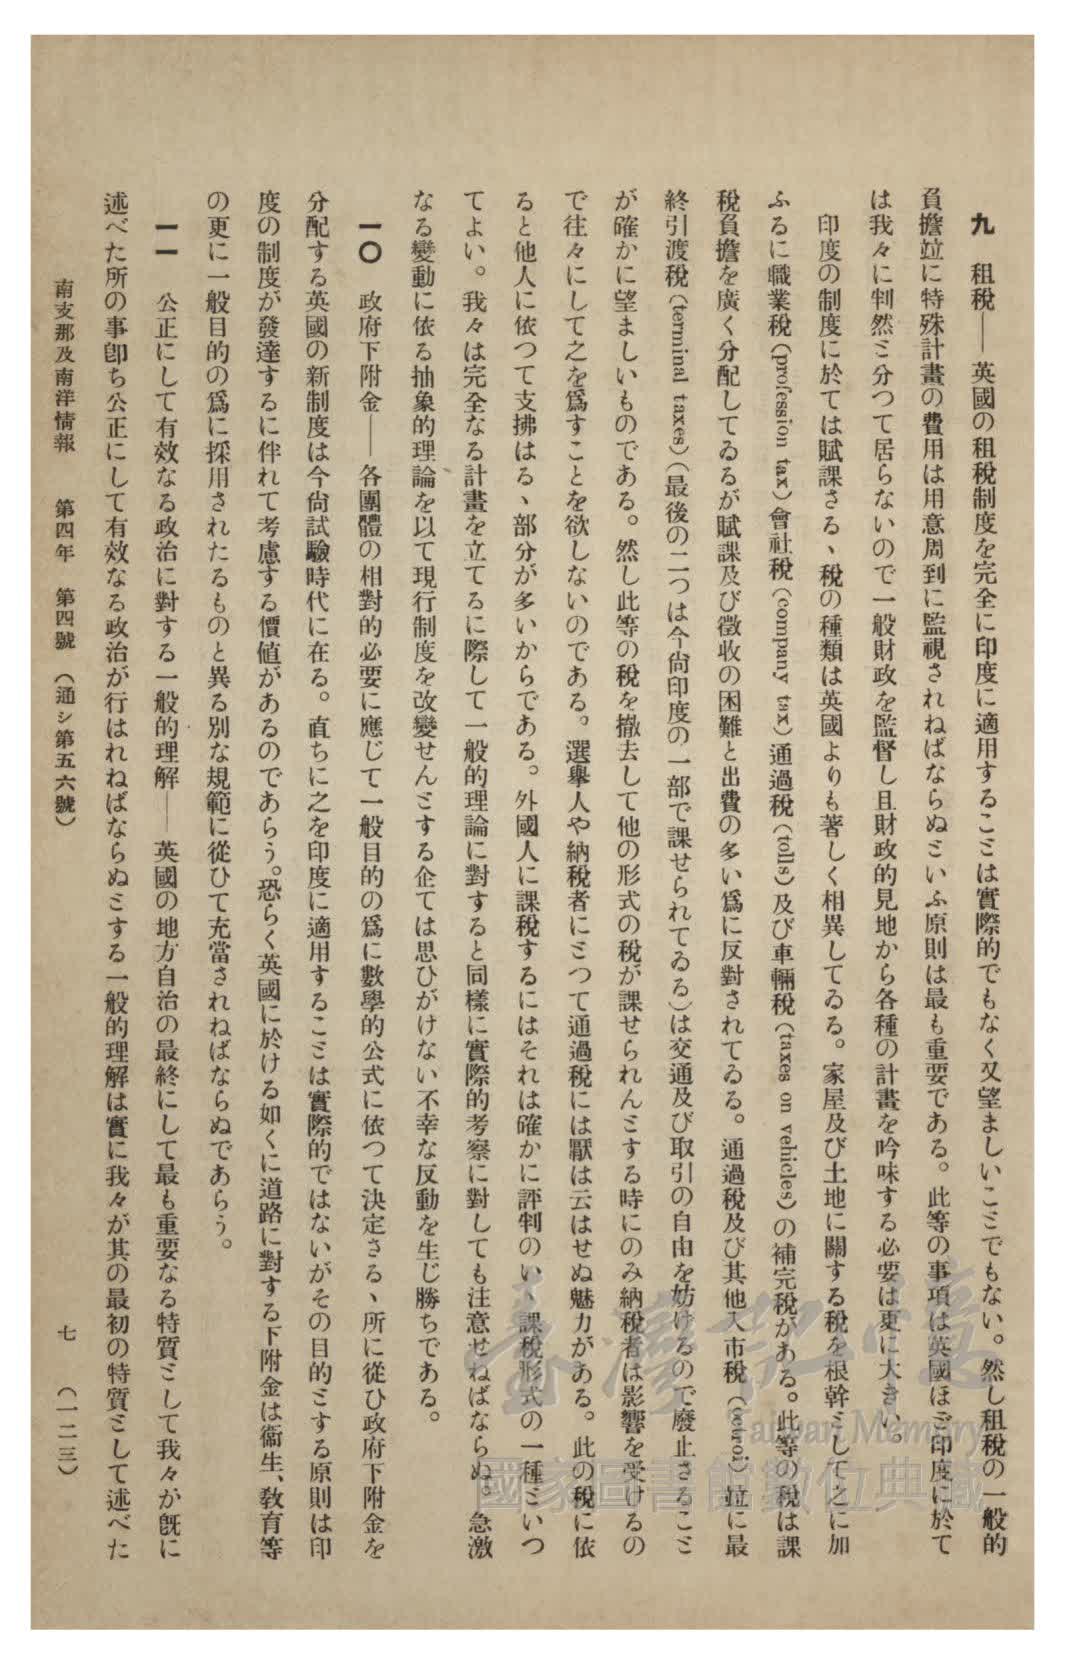 九　租稅——英國の租稅制度を完全に印度に適用するこミは實際的でもなく又望ましいこミでもない。然し租稅の一般的
負擔竝に特殊計畫の費用は用意周到に監視されねばならぬミいふ原則は最も重要である。此等の事項は英國ほど印度に於て
は我々に判然ミ分つて居らないので一般財政を監督し且財政的見地から各種の計畫を吟味する必要は更に大きい。
印度の制度に於ては賦課さるゝ稅の種類は英國よりも著しく相異してゐる。家屋及び土地に關する稅を根幹ミして之に加
ふるに職業稅（profession tax）會社稅（company tax）通過稅（tolls）及び車輛稅（taxes on vehicles）の補完稅がある。此等の稅は課
稅負擔を廣く分配してゐるが賦課及び徵收の困難と出費の多い爲に反對されてゐる。通過稅及び其他入市稅（octroi）竝に最
終引渡稅（terminal taxes）（最後の二つは今尙印度の一部で課せられてゐる）は交通及び取引の自由を妨けるので廢止さるこミ
が確かに望ましいものである。然し此等の稅を撤去して他の形式の稅が課せられんミする時にのみ納稅者は影響を受けるの
で往々にして之を爲すことを欲しないのである。選擧人や納稅者にミつて通過稅には厭は云はせぬ魅力がある。此の稅に依
ると他人に依つて支拂はるゝ部分が多いからである。外國人に課稅するにはそれは確かに評判のいゝ課稅形式の一種ミいつ
てよい。我々は完全なる計畫を立てるに際して一般的理論に對すると同樣に實際的考察に對しても注意せねばならぬ。急激
なる變動に依る抽象的理論を以て現行制度を改變せんミする企ては思ひがけない不幸な反動を生じ勝ちである。
一〇　政府下附金——各團體の相對的必要に應じて一般目的の爲に數學的公式に依つて決定さるゝ所に從ひ政府下附金を
分配する英國の新制度は今尙試驗時代に在る。直ちに之を印度に適用するこミは實際的ではないがその目的ミする原則は印
度の制度が發達するに伴れて考慮する價値があるのであらう。恐らく英國に於ける如くに道路に對する下附金は衞生、敎育等
の更に一般目的の爲に採用されたるものと異る別な規範に從ひて充當されねばならぬであらう。
一一　公正にして有效なる政治に對する一般的理解——英國の地方自治の最終にして最も重要なる特質ミして我々が旣に
述べた所の事卽ち公正にして有效なる政治が行はれねばならぬミする一般的理解は實に我々が其の最初の特質ミして述べた
南支那及南洋情報　第四年　第四號　（通シ第五六號）　七　（一二三）
臺灣記憶
Taiwan Memory
國家圖書館數位典藏